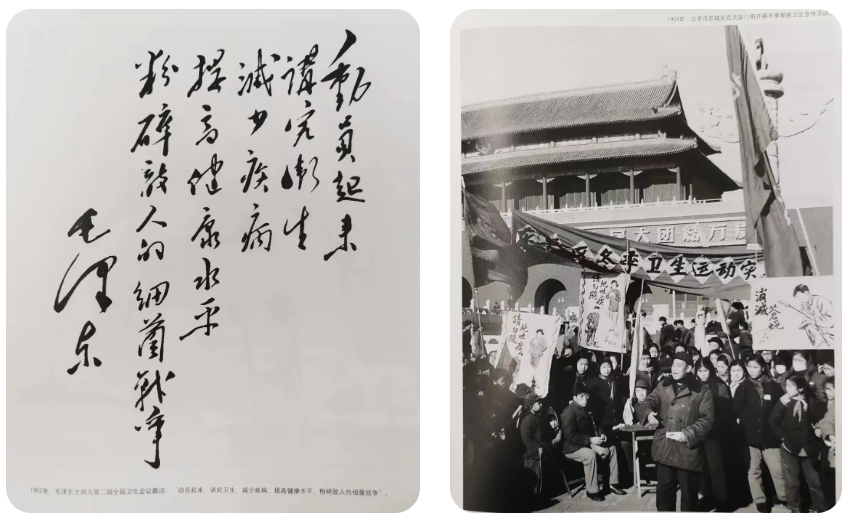 動員起来
講究衛生
減少疾病
提高健康水平
粉碎敌人的细菌戰爭
毛泽东
1952年，毛泽东主席为第二届全国卫生会议题词：“动员起来，讲究卫生，减少疾病，提高健康水平，粉碎敌人的细菌战争”。
1957年，北京市东城区在天安门前开展冬季爱国卫生宣传活动。
民大团结万
区冬季卫生运动实
請勿随地吐痰
請勿随地吐痰
消滅